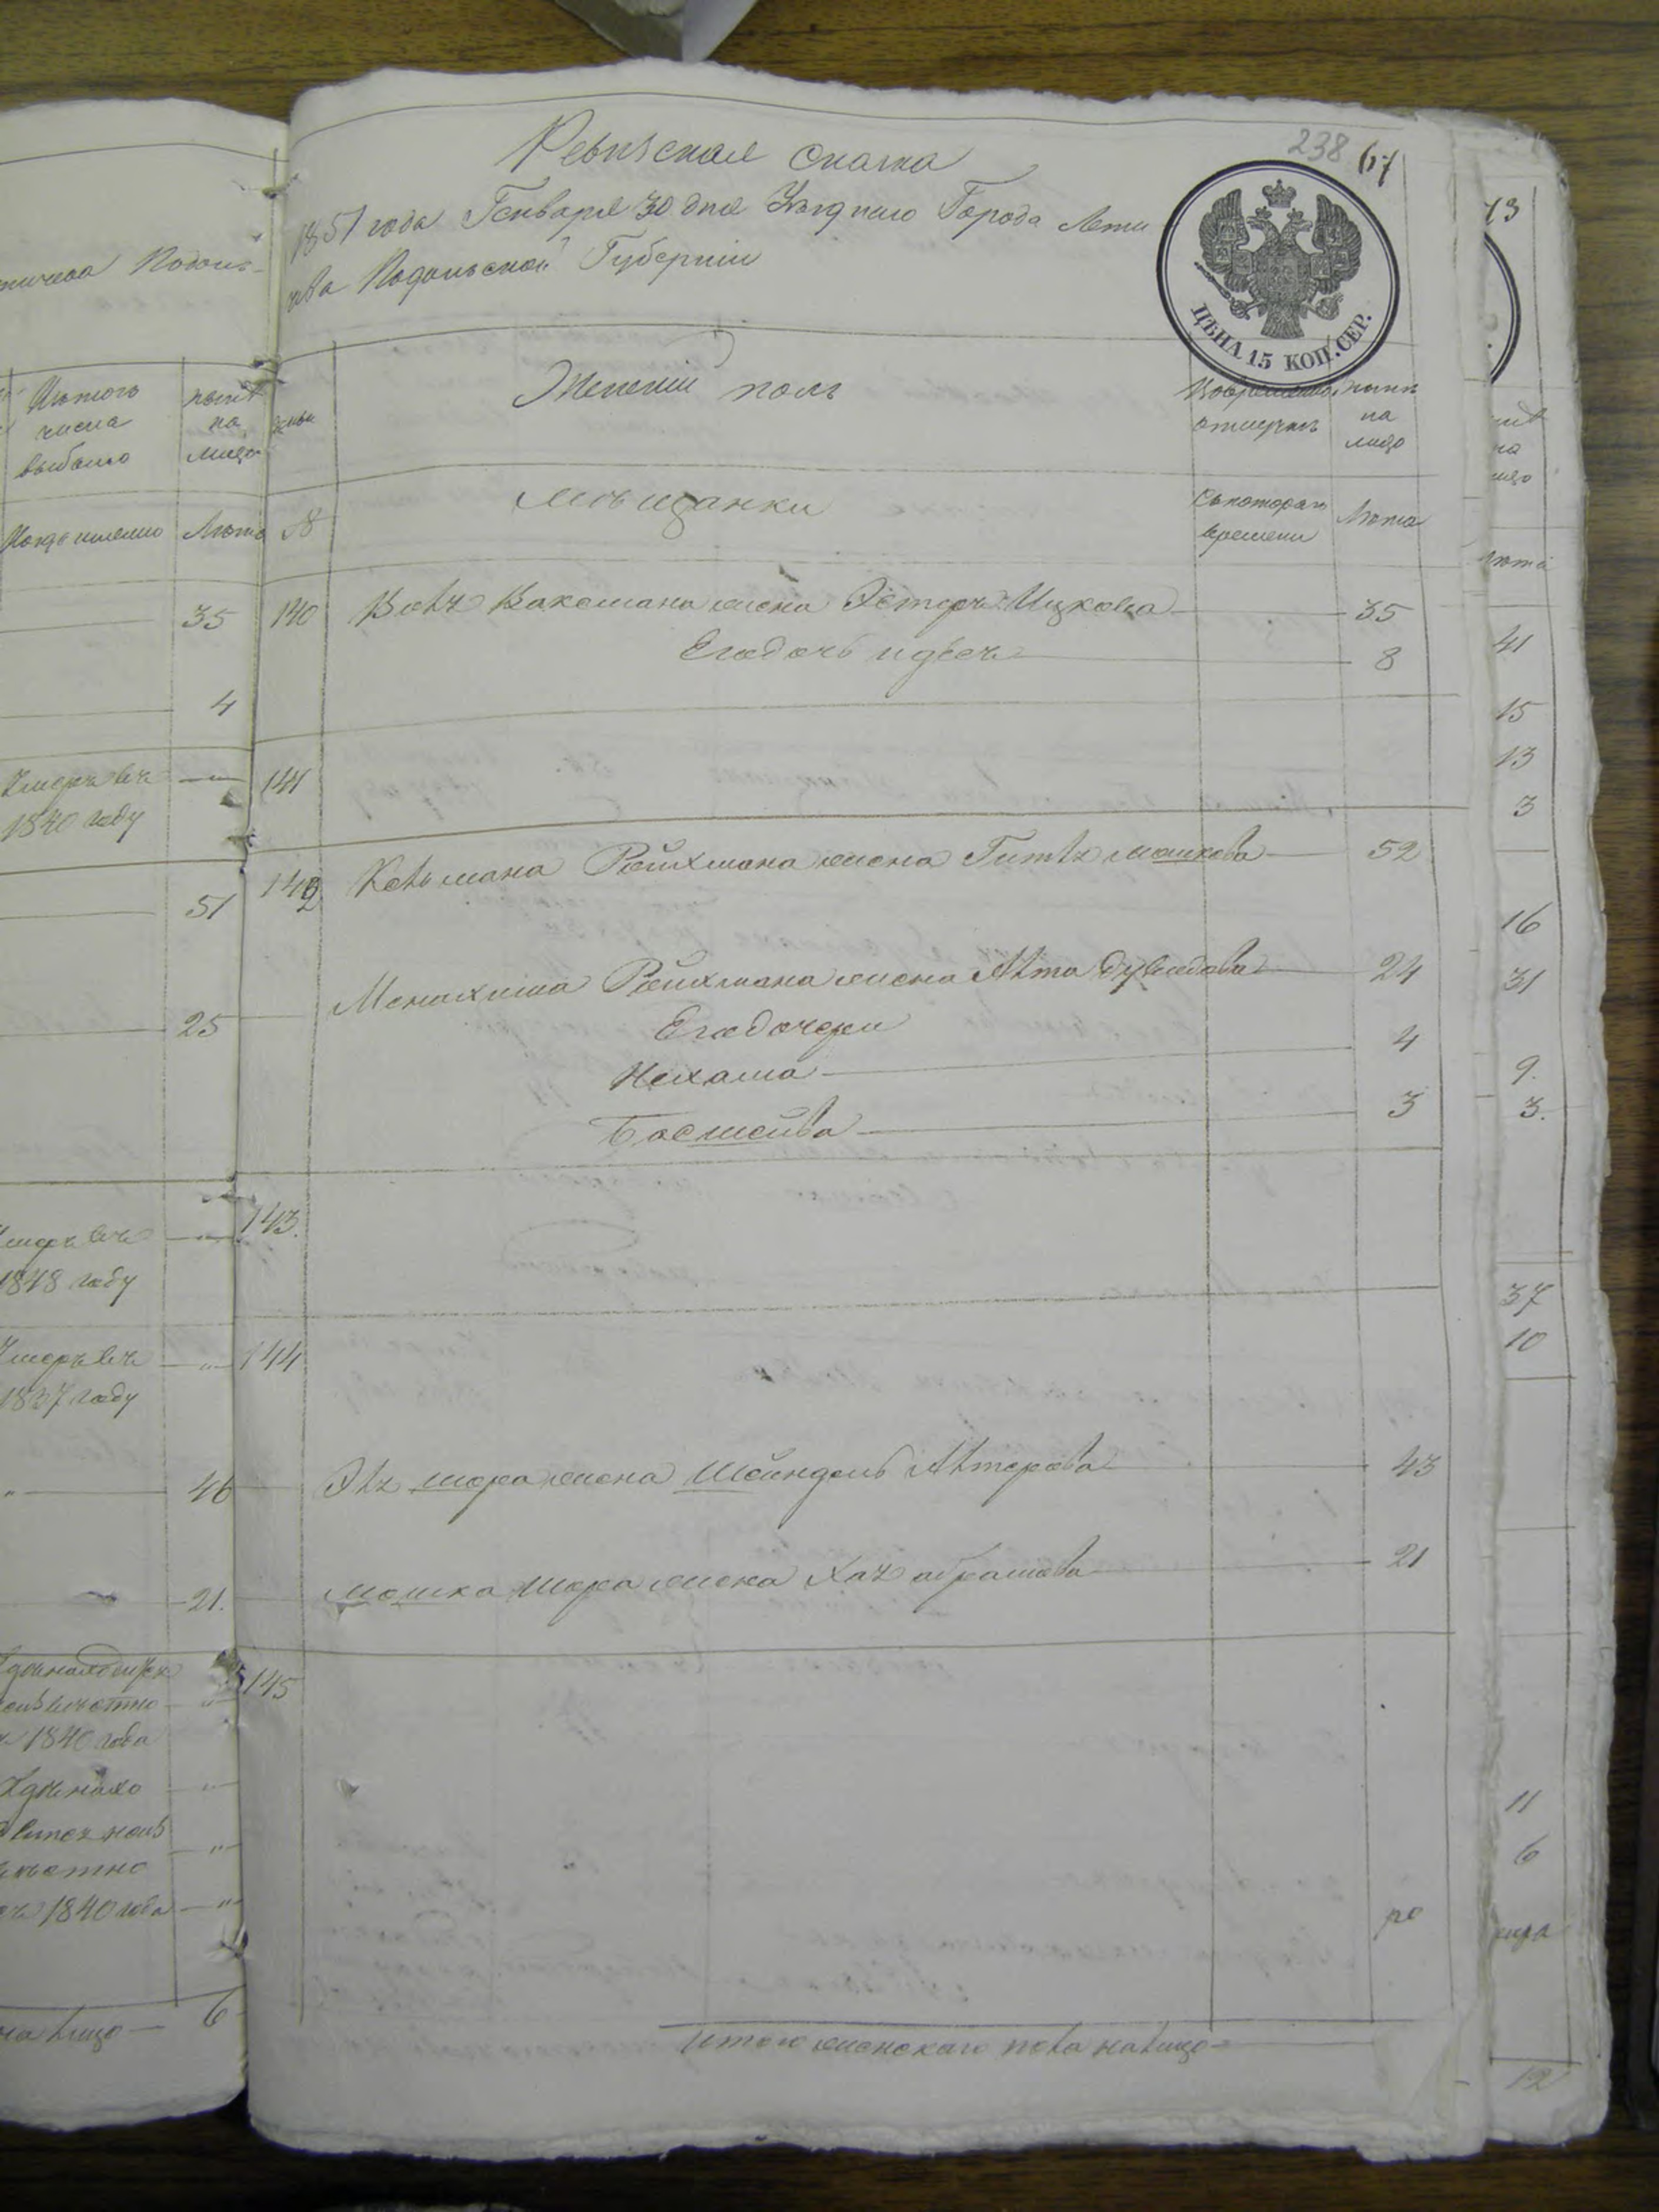 238 67
Ревизская сказка
1851 года Генваря 30 дня Уѣзднаго Города Лети
чева Подольской Губерніи
ЦѢНА 15 КОП. СЕР.
Женскій полъ
на
лицо
Мѣщанки
Съ котораго
времени
Лѣта
№
140 Жена Эстеръ Ицкова 35
Его дочь 8
141
142 Кельмана Ройхмана жена Гитль Мошкова 52
Менахима Ройхмана жена Алта Дувидова 24
Его дочери
Нехама 4
Басшейва 3
143.
144
Эль Шора жена Шейндель Алтерова 43
Мошка Шора жена Хая Абрамова 21
145
Итого женскаго пола на лицо
тичева Подоль-
Изъ того
числа
выбыло
на
лицо
Когда именно Лѣта
35
4
Умеръ въ
1840 году
51
25
Умеръ въ
1848 году
Умеръ въ
1837 году
46
21.
1840 года
1840 года
на лицо 6
73
на
лѣта
41
15
13
3
16
31
9.
3.
37
10
11
6
12